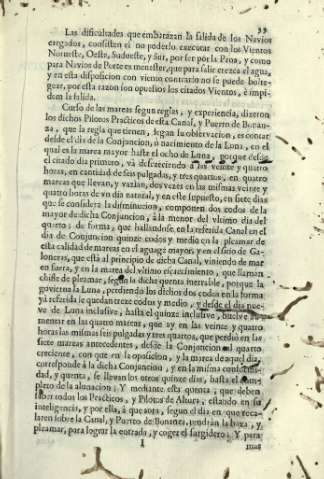 33
Las dificultades que embarazan la salida de los Navios
cargados, consisten el no poderlo executar con los Vientos
Norueste, Oeste, Sudueste, y Sur, por ser por la Proa, y como
para Navios de Porte es menester, que para salir crezca el agua,
y en esta disposicion con viento contrario no se puede bolte-
gear, por esta razon son opuestos los citados Vientos, è impi-
den la salida.
Curso de las mareas segun reglas, y experiencia, dizeron
los dichos Pilotos Practicos de esta Canal, y Puerto de Bonan-
za, que la regla que tienen, segun su observacion, es contar
desde el dia de la Conjuncion, ò nacimiento de la Luna, en el
qual es la marea mayor hasta el ocho de Luna, porque desde
el citado dia primero, và descreciendo à las veinte y quatro
horas, en cantidad de seis pulgadas, y tres quartos, en quatro
mareas que llevan, y vazian, dos vezes en las mismas veinte y
quatro horas de un dia natural, y en este supuesto, en siete dias
que se considera la disminucion, componen dos codos de la
mayor de dicha Conjuncion, à la menor del vltimo dia del
quarto; de forma, que hallandose en la referida Canal en el
dia de Conjuncion quinze codos y medio en la pleamar de
esta calidad de mareas en el aguage mayor, y en el sitio de Ga-
loneras, que està al principio de dicha Canal, viniendo de mar
en fuera, y en la marea del vltimo escarcimiento, que llaman
chisle de pleamar, segun la dicha quenta inerrable, porque la
govierna la Luna, perdiendo los dichos dos codos en la forma
yà referida le quedan treze codos y medio, y desde el dia nue-
ve de Luna inclusive, hasta el quinze inclusive, buelve à
mentar en las quatro mareas, que ay en las veinte y quatro
horas las mismas seis pulgadas y tres quartos, que perdiò en las
siete mareas antecedentes, desde la Conjuncion al quarto
creciente, con que en la oposicion, y la marea de aquel dia,
corresponde à la dicha Conjuncion, y en la misma
dad, y quenta, se llevan los otros quinze dias, hasta el
plero de la alunacion; Y mediante esta quenta, que deben
saber todos los Practicos, y Pilotos de Altura, estando en su
inteligencia, y por ella, à que ora, segun el dia en que reca-
laren sobre la Canal, y Puerto de Bonança, tendràn la baxa, y
pleamar, para lograr la entrada, y coger el surgidero; Y para
I
mas